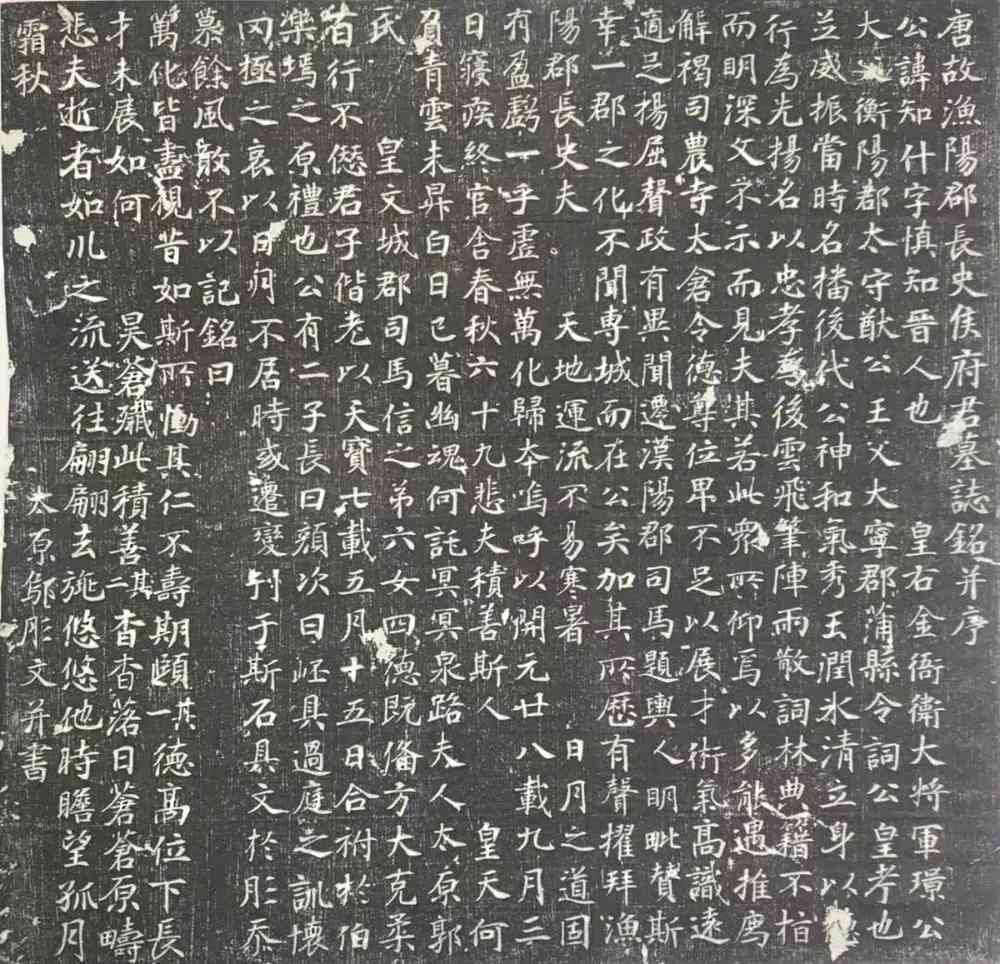 唐故漁陽郡長史侯府君墓誌銘并序
公諱知什字慎知晉人也 皇右金衙衛大将軍璟公
大父衡陽郡太守猷公王父大寧郡蒲縣令詞公皇考也
並威振當時名播後代公神和氣秀玉潤氷清立身以
行為先揚名以忠孝為後雲飛筆陣雨散詞林典籍不指
而明深文不示而見夫其若此衆所仰焉以多能遇推薦
解褐司農寺太倉令德尊位卑不足以展才術氣高識遠
適足揚屈聲政有異聞遷漢陽郡司馬題輿人明毗賛斯
幸一郡之化不聞専城而在公矣加其所歷有聲擢拜漁
陽郡長史夫 天地運流不易寒暑 日月之道固
有盈虧一乎虛無萬化歸夲嗚呼以開元廿八載九月三
日寢疾終官舍春秋六十九悲夫積善斯人 皇天何
負青雲未昇白日已暮幽魂何託冥冥泉路夫人太原郭
氏 皇文城郡司馬信之弟六女四德既俻方大克柔
百行不僁君子偕老以天寶七載五月十五日合祔於伯
樂塢之原禮也公有二子長曰顔次曰岯具過庭之訓懷
罔極之哀以日月不居時或遷變刊于斯石具文於彤忝
慕餘風敢不以記銘曰
萬化皆盡視昔如斯所慟其仁不壽期頤其一德髙位下長
才未展如何 昊蒼殲此積善其二杳杳落日蒼蒼原疇
悲夫逝者如川之流送往翩翩去旐悠悠他時瞻望孤月
霜秋
太原鄔彤文并書